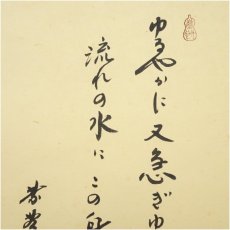 ゆるやかに又急ぎゆ
流れの水にこの